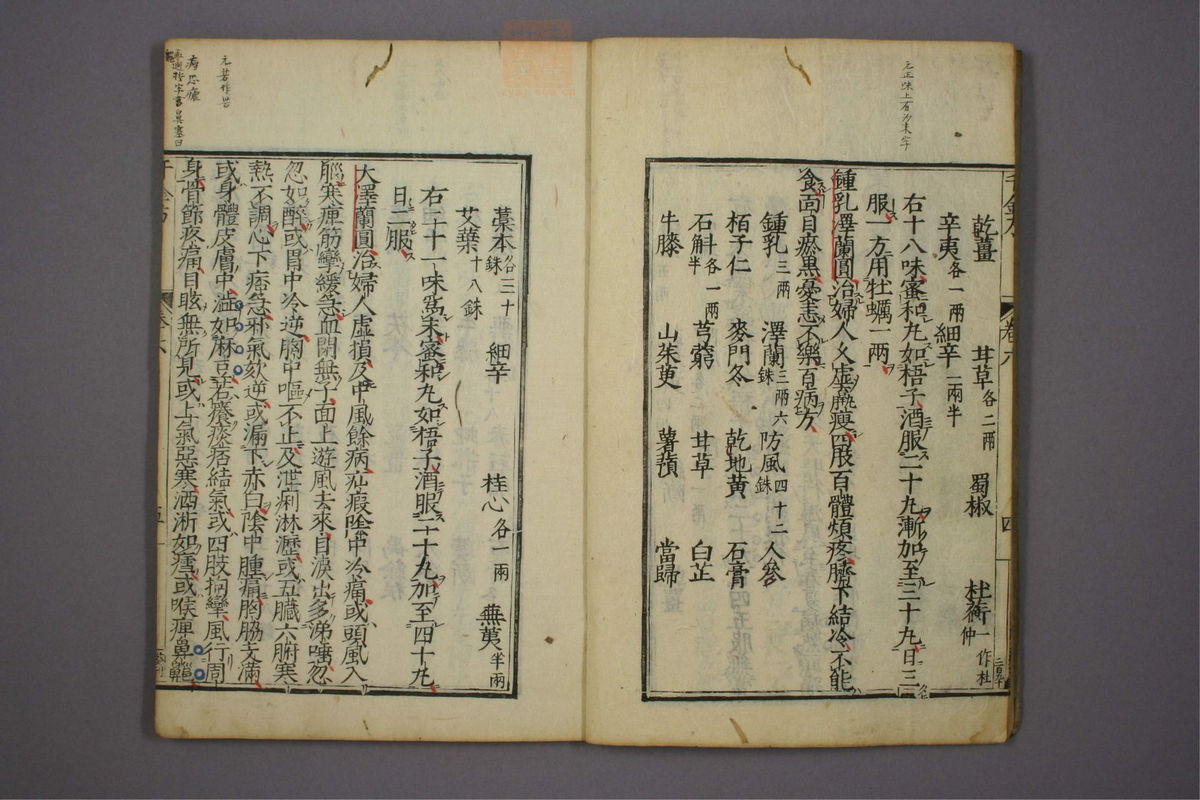 元正味上有為末字
乾薑 甘草各二兩 蜀椒 杜蘅一作杜仲
辛夷各一兩 細辛一兩半
右十八味蜜和丸如梧子酒服二十丸漸加至三十丸日三
服一方用牡蠣一兩
鍾乳澤蘭圓治婦人久虛羸瘦四肢百體煩疼臍下結冷不能
食面目瘀黑憂恚不樂百病方
鍾乳三兩 澤蘭三兩六銖 防風四十二銖 人參
栢子仁 麥門冬 乾地黃 石膏
石斛各一兩半 芎藭 甘草 白芷
牛膝 山茱萸 薯蕷 當歸
藁本各三十銖 細辛 桂心各一兩 蕪荑半兩
艾葉十八銖
右二十一味為末蜜和丸如梧子酒服二十丸加至四十丸
日二服
大澤蘭圓治婦人虛損及中風餘病疝瘕陰中冷痛或頭風入
腦寒痺筋攣緩急血閉無子面上遊風去來目淚出多涕唾忽
忽如醉或胃中冷逆胸中嘔不止及泄痢淋瀝或五臟六腑寒
熱不調心下痞急邪氣欬逆或漏下赤白陰中腫痛胸脇支滿
或身體皮膚中澁如麻豆若癢痰癖結氣或四肢拘攣風行周
身骨節疼痛目眩無所見或上氣惡寒洒淅如瘧或喉痺鼻齆
千金方 卷六 四
卷六 五
元若作苦